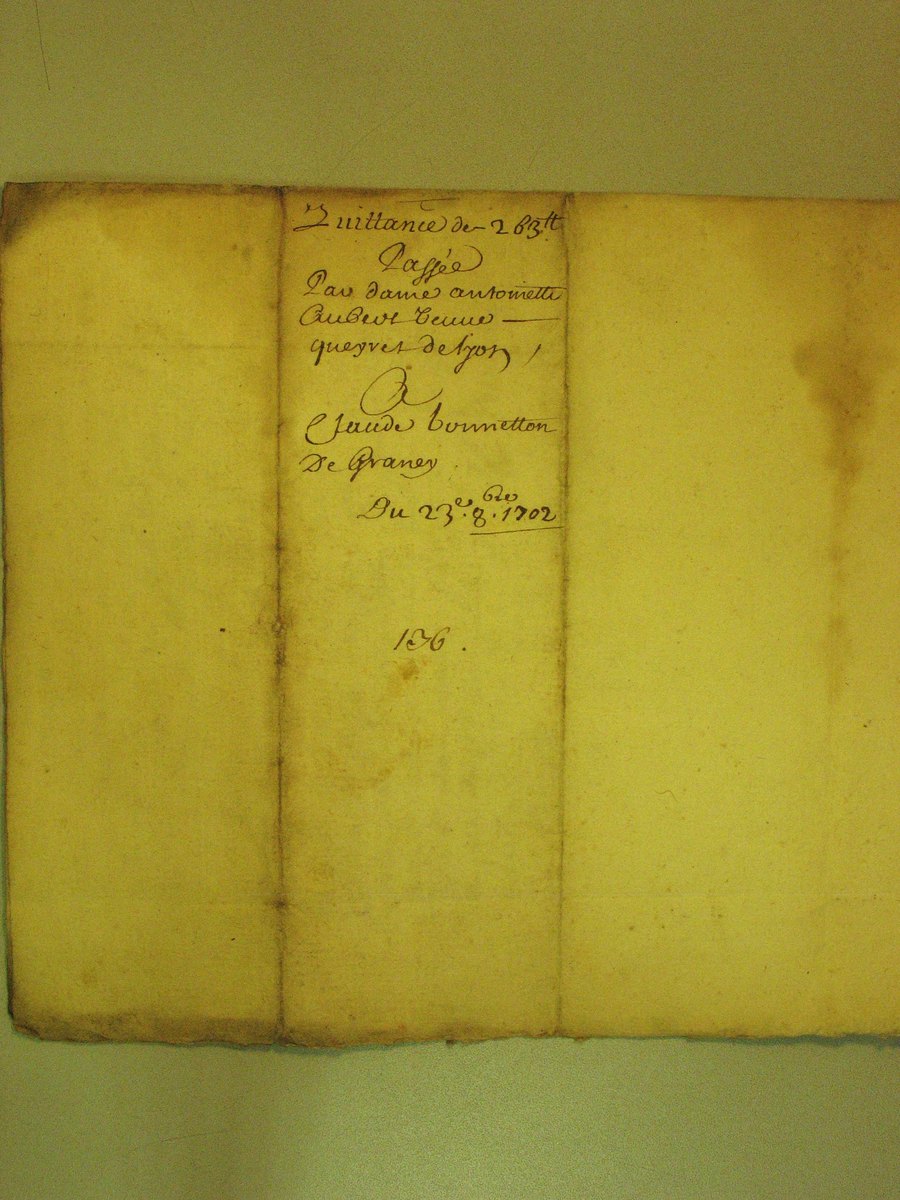 Quittance de 263tt
Passée
Par dame antoinette
Aubert veuve —
queyret de lyon,
A
Claude bonnetton
De Graney.
Du 23e. 8.bre 1702
136.